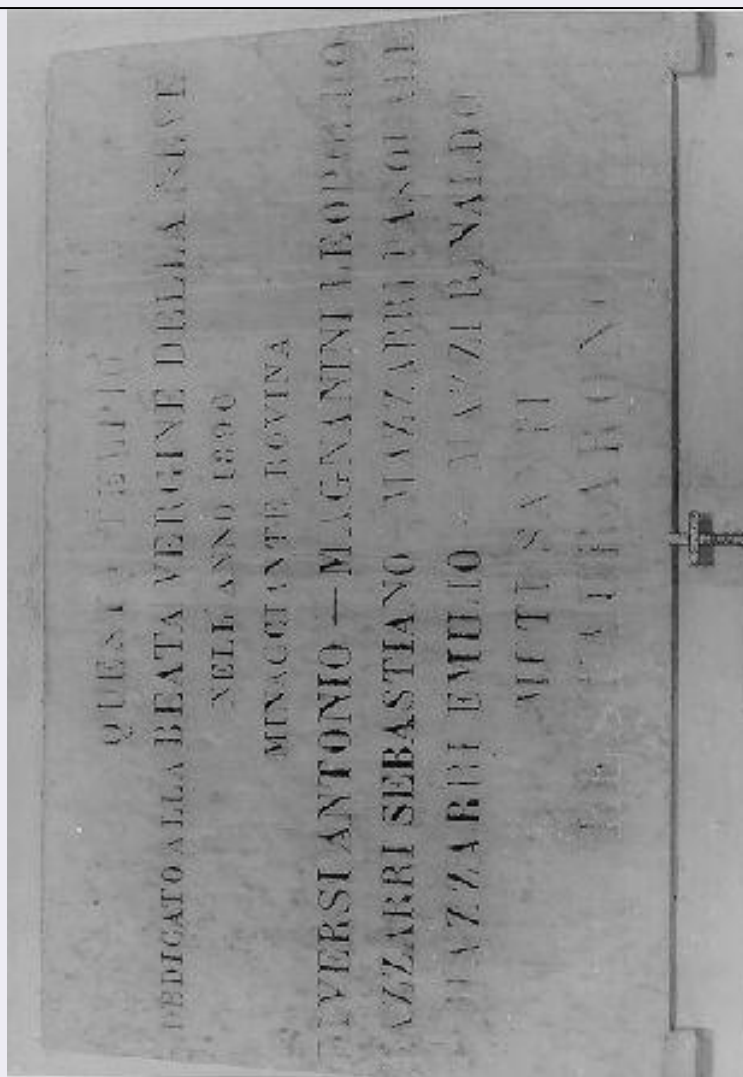 QUESTO TEMPIO
DEDICATO ALLA BEATA VERGINE DELLA NEVE
NELL ANNO 1896
MINACCIANTE ROVINA
ANTONIO — MAGNANINI LEOPOLDO
SEBASTIANO — MAZZARRI PASQUALE
MAZZARRI EMILIO — MAZZI RINALDO
MUTI SANTI
RESTAURARONO